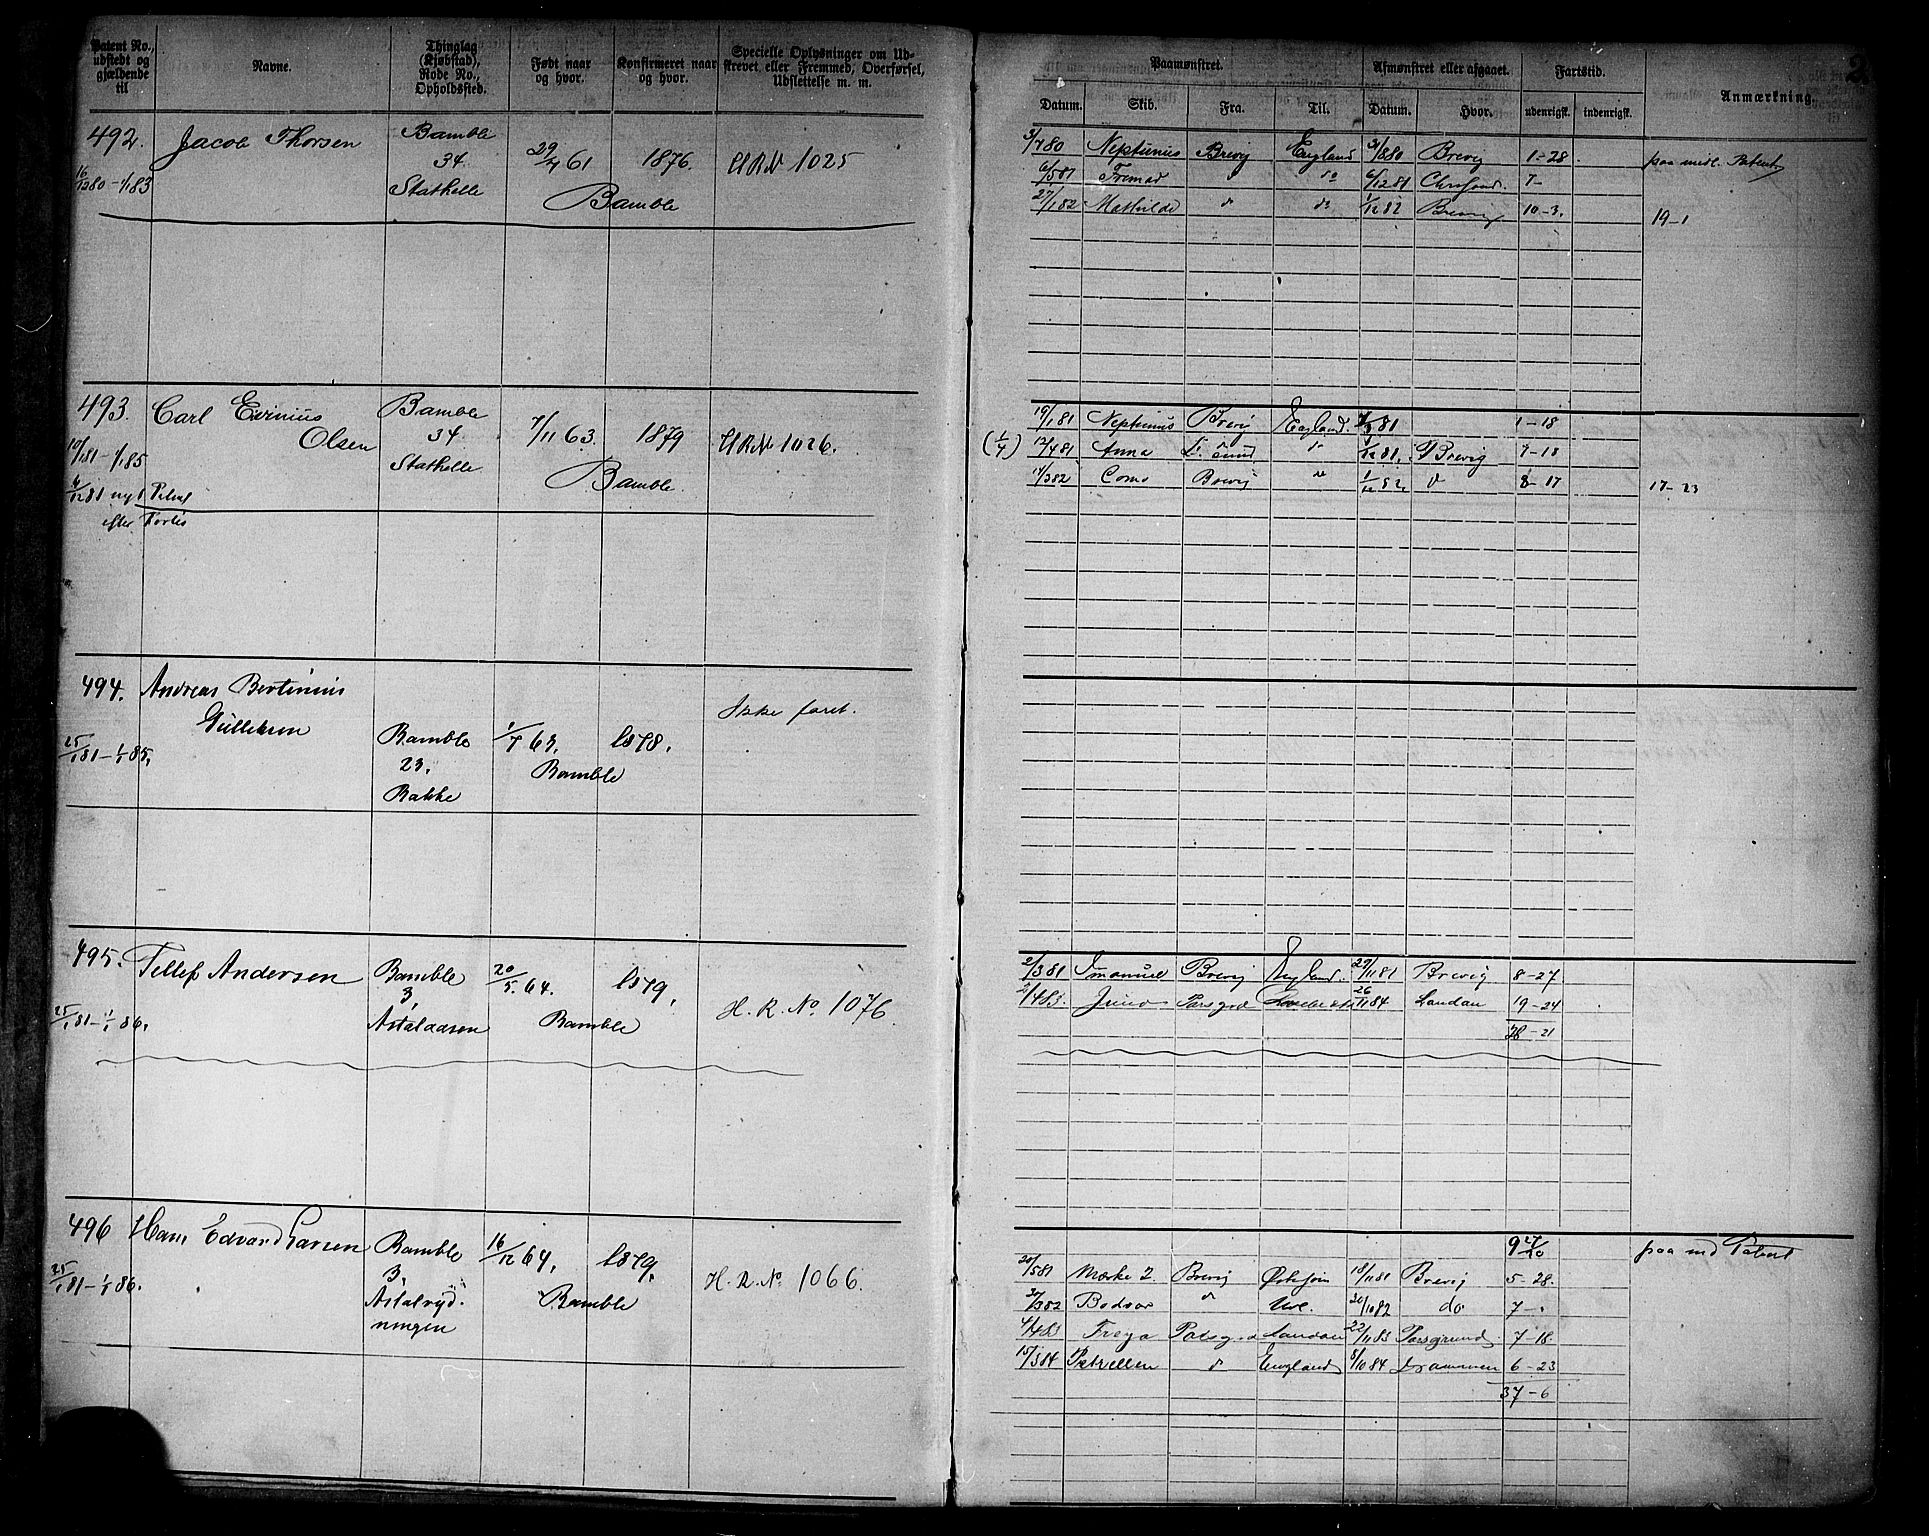 Patent No., udstedt og gjældende til
Navne.
Thinglag (Kjøbstad), Rode No., Opholdssted.
Født naar og hvor.
Konfirmeret naar og hvor.
Specielle Oplysninger om Udskrevet eller Fremmed, Overførsel, Udslettelse m. m.
Paamønstret.
Afmønstret eller afgaaet.
Fartstid.
Anmærkning.
Datum. Skib. Fra. Til. Datum. Hvor. udenrigsk. indenrigsk.
2
492. Jacob Thorsen Bamble 29/7 61 1876. H R No 1025
16/12 80 - 1/1 83 34 Bamble
Stathelle
3/7 80 Neptunus Brevig England 31/8 80 Brevig 1-28 paa midl. Patent
6/5 81 Fremad " do 6/12 81 Chrsand. 7-
27/1 82 Mathilde " do 1/12 82 Brevig 10-3. 19-1
493. Carl Evinius Bamble 7/11 63. 1879 H R No 1026.
Olsen 34 Bamble.
10/1 81 - 1/1 85 Stathelle
4/12 81 nyt Patent
efter Forlis
19/1 81 Neptunus Brevig England. 81 1-18
(1/4) 12/4 81 Anna " 1/12 81. Brevig 7-18
14/3 82 Como Brevig " 1/12 82 " 8-17 17-23
494. Andreas Bertinius Ikke faret.
Gulleksen Bamble 1/7 63. 1878.
25/1 81 - 1/1 85, 23. Bamble
Bakke
495. Tellef Andersen Bamble 20/5. 64. 1879. H. R. No 1076
25/1 81 - 1/1 86. 3, Bamble
Aslalaasen
2/3 81 Imanuel Brevig England. 27/11 81 Brevig 8-27
2/4 83. Juno Porsgrd 26/11 84 Landau 19-24
-21
496 Hans Edvard Larsen Bamble 16/12 64, 1879, H. R. No. 1066.
25/1 81 - 1/1 86. 3, Bamble
Aslalryd-
ningen
9 paa md Patent
20/5 81 Mærke 2 Brevig Østersøen 18/11 81 Brevig 5-28.
3/3 82 Bodvar " Uvl. 20/10 82 do 7-.
4/4 83 Freya Porsgrd Landau 22/11 83 Porsgrund 7-18.
15/3 84 Petrellen " England 8/10 84 Drammen 6-23
37-6